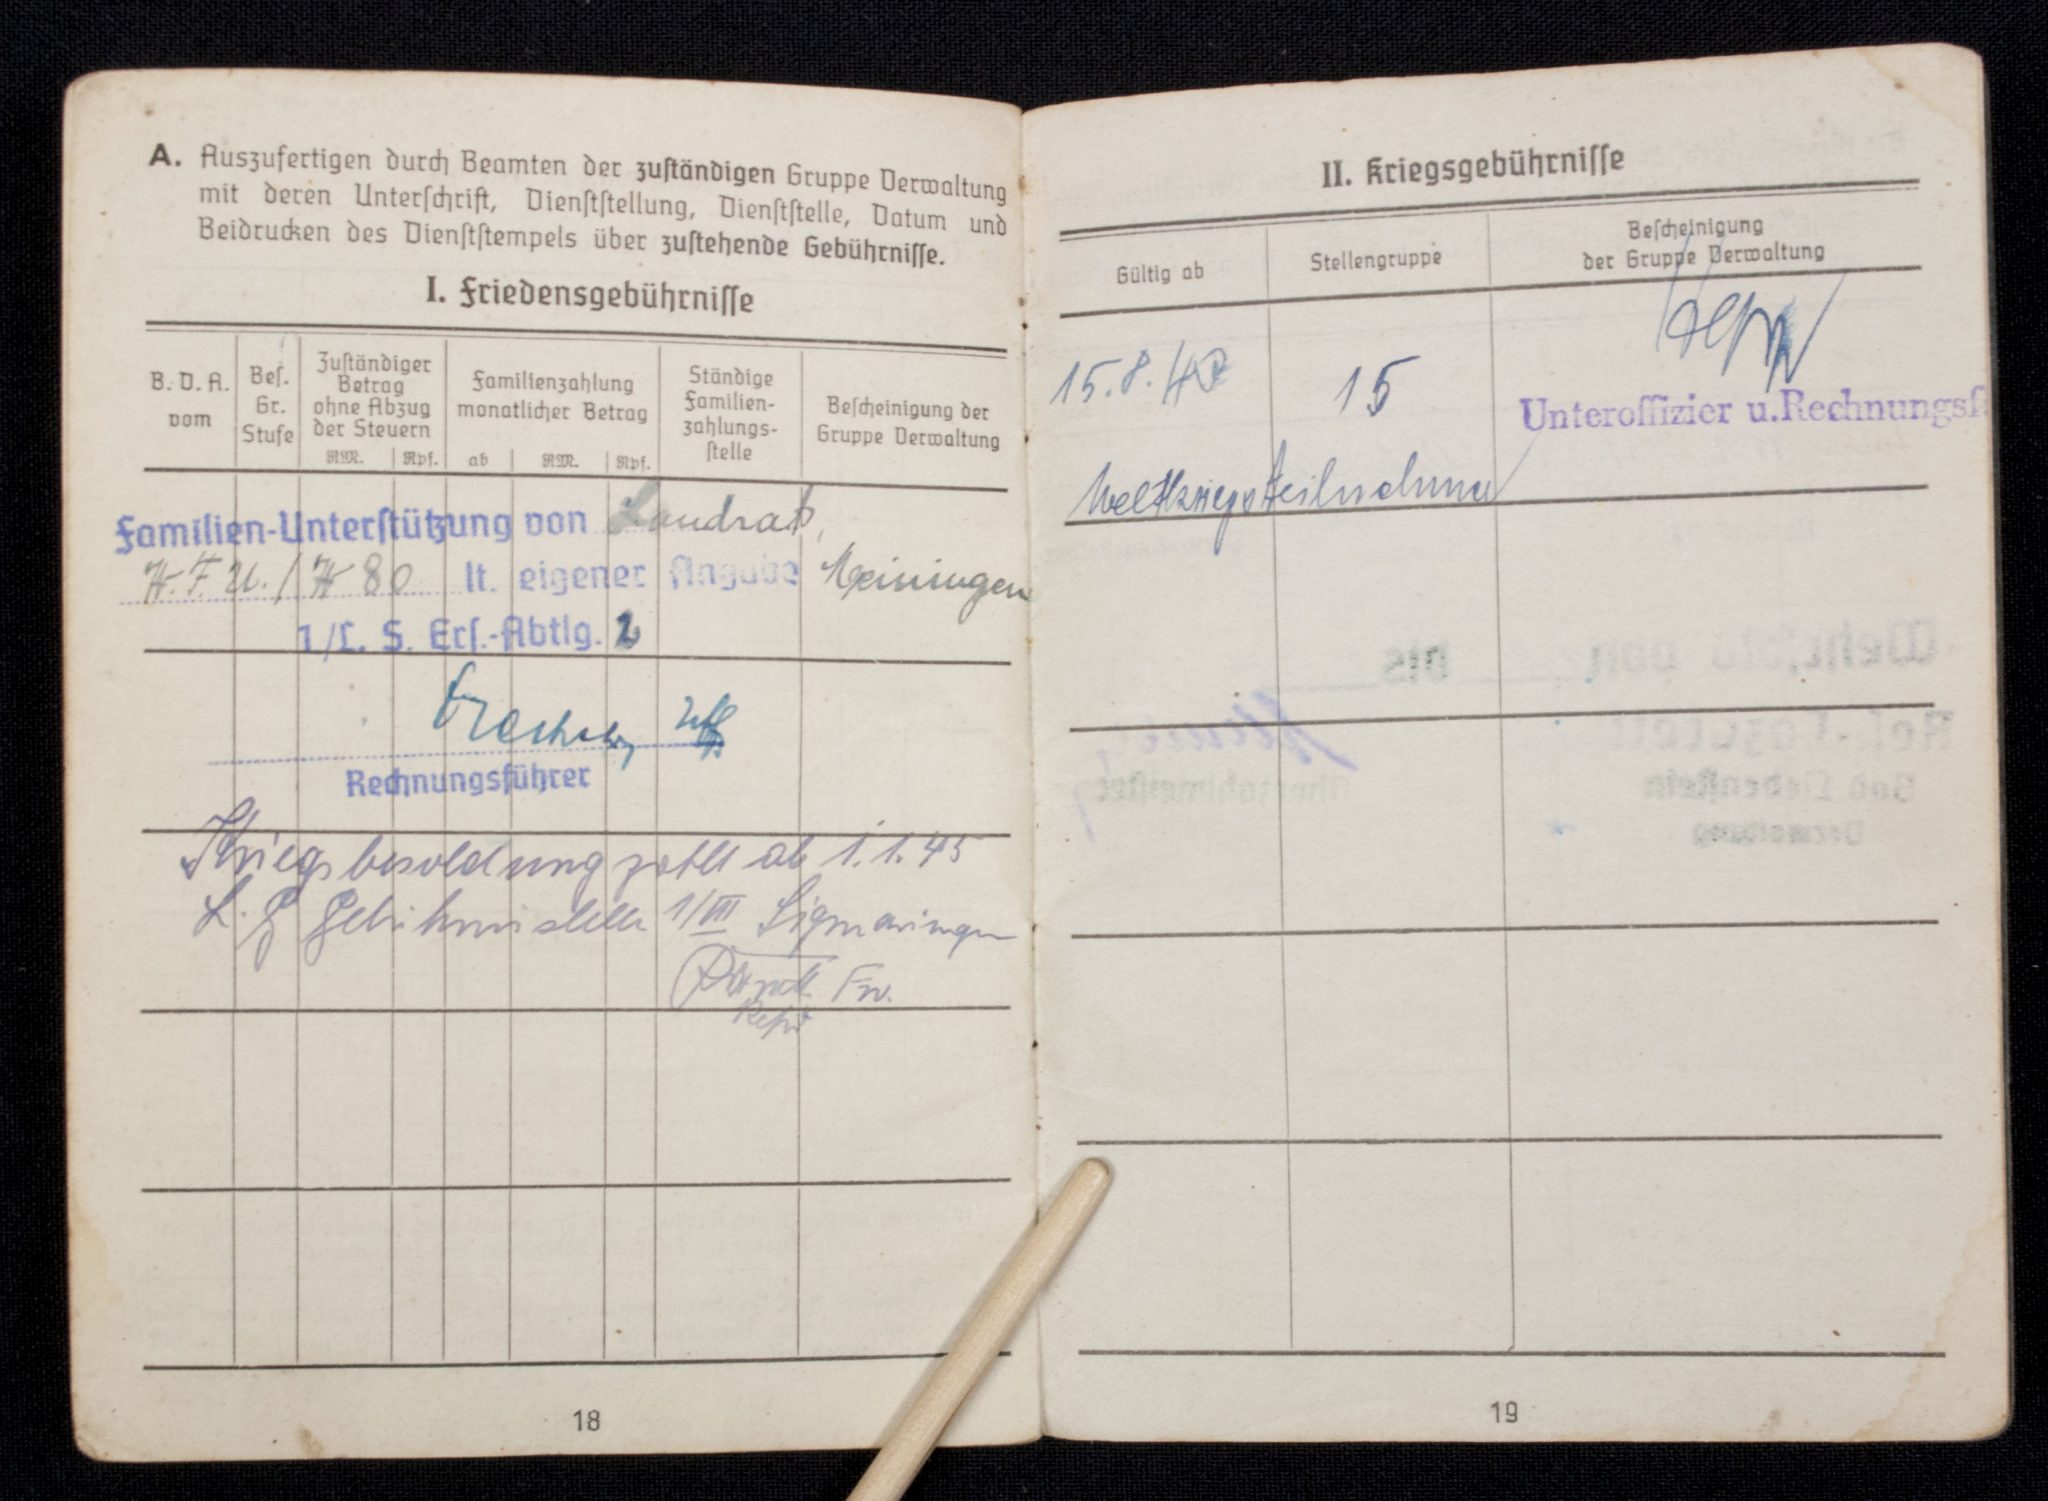 A. Auszufertigen durch Beamten der zuständigen Gruppe Verwaltung
mit deren Unterschrift, Dienststellung, Dienststelle, Datum und
Beidrucken des Dienststempels über zustehende Gebührnisse.
I. Friedensgebührnisse
B. D. A. vom
Bes. Gr. Stufe
Zuständiger Betrag ohne Abzug der Steuern
Familienzahlung monatlicher Betrag
Ständige Familien-zahlungs-stelle
Bescheinigung der Gruppe Verwaltung
RM. Rpf. ab RM. Rpf.
Familien-Unterstützung von Landrat,
H. F. U. / H 80 lt. eigener Angabe Meiningen
1/L. S. Ers.-Abtlg. 2
Uffz.
Rechnungsführer
Kriegsbesoldung zahlt ab 1.1.45
L. G Gebührnisstelle 1/VII Sigmaringen
Fw.
18
II. Kriegsgebührnisse
Gültig ab
Stellengruppe
Bescheinigung
der Gruppe Verwaltung
15.8.40 15
Unteroffizier u. Rechnungsf
Weltkriegsteilnehmer
19